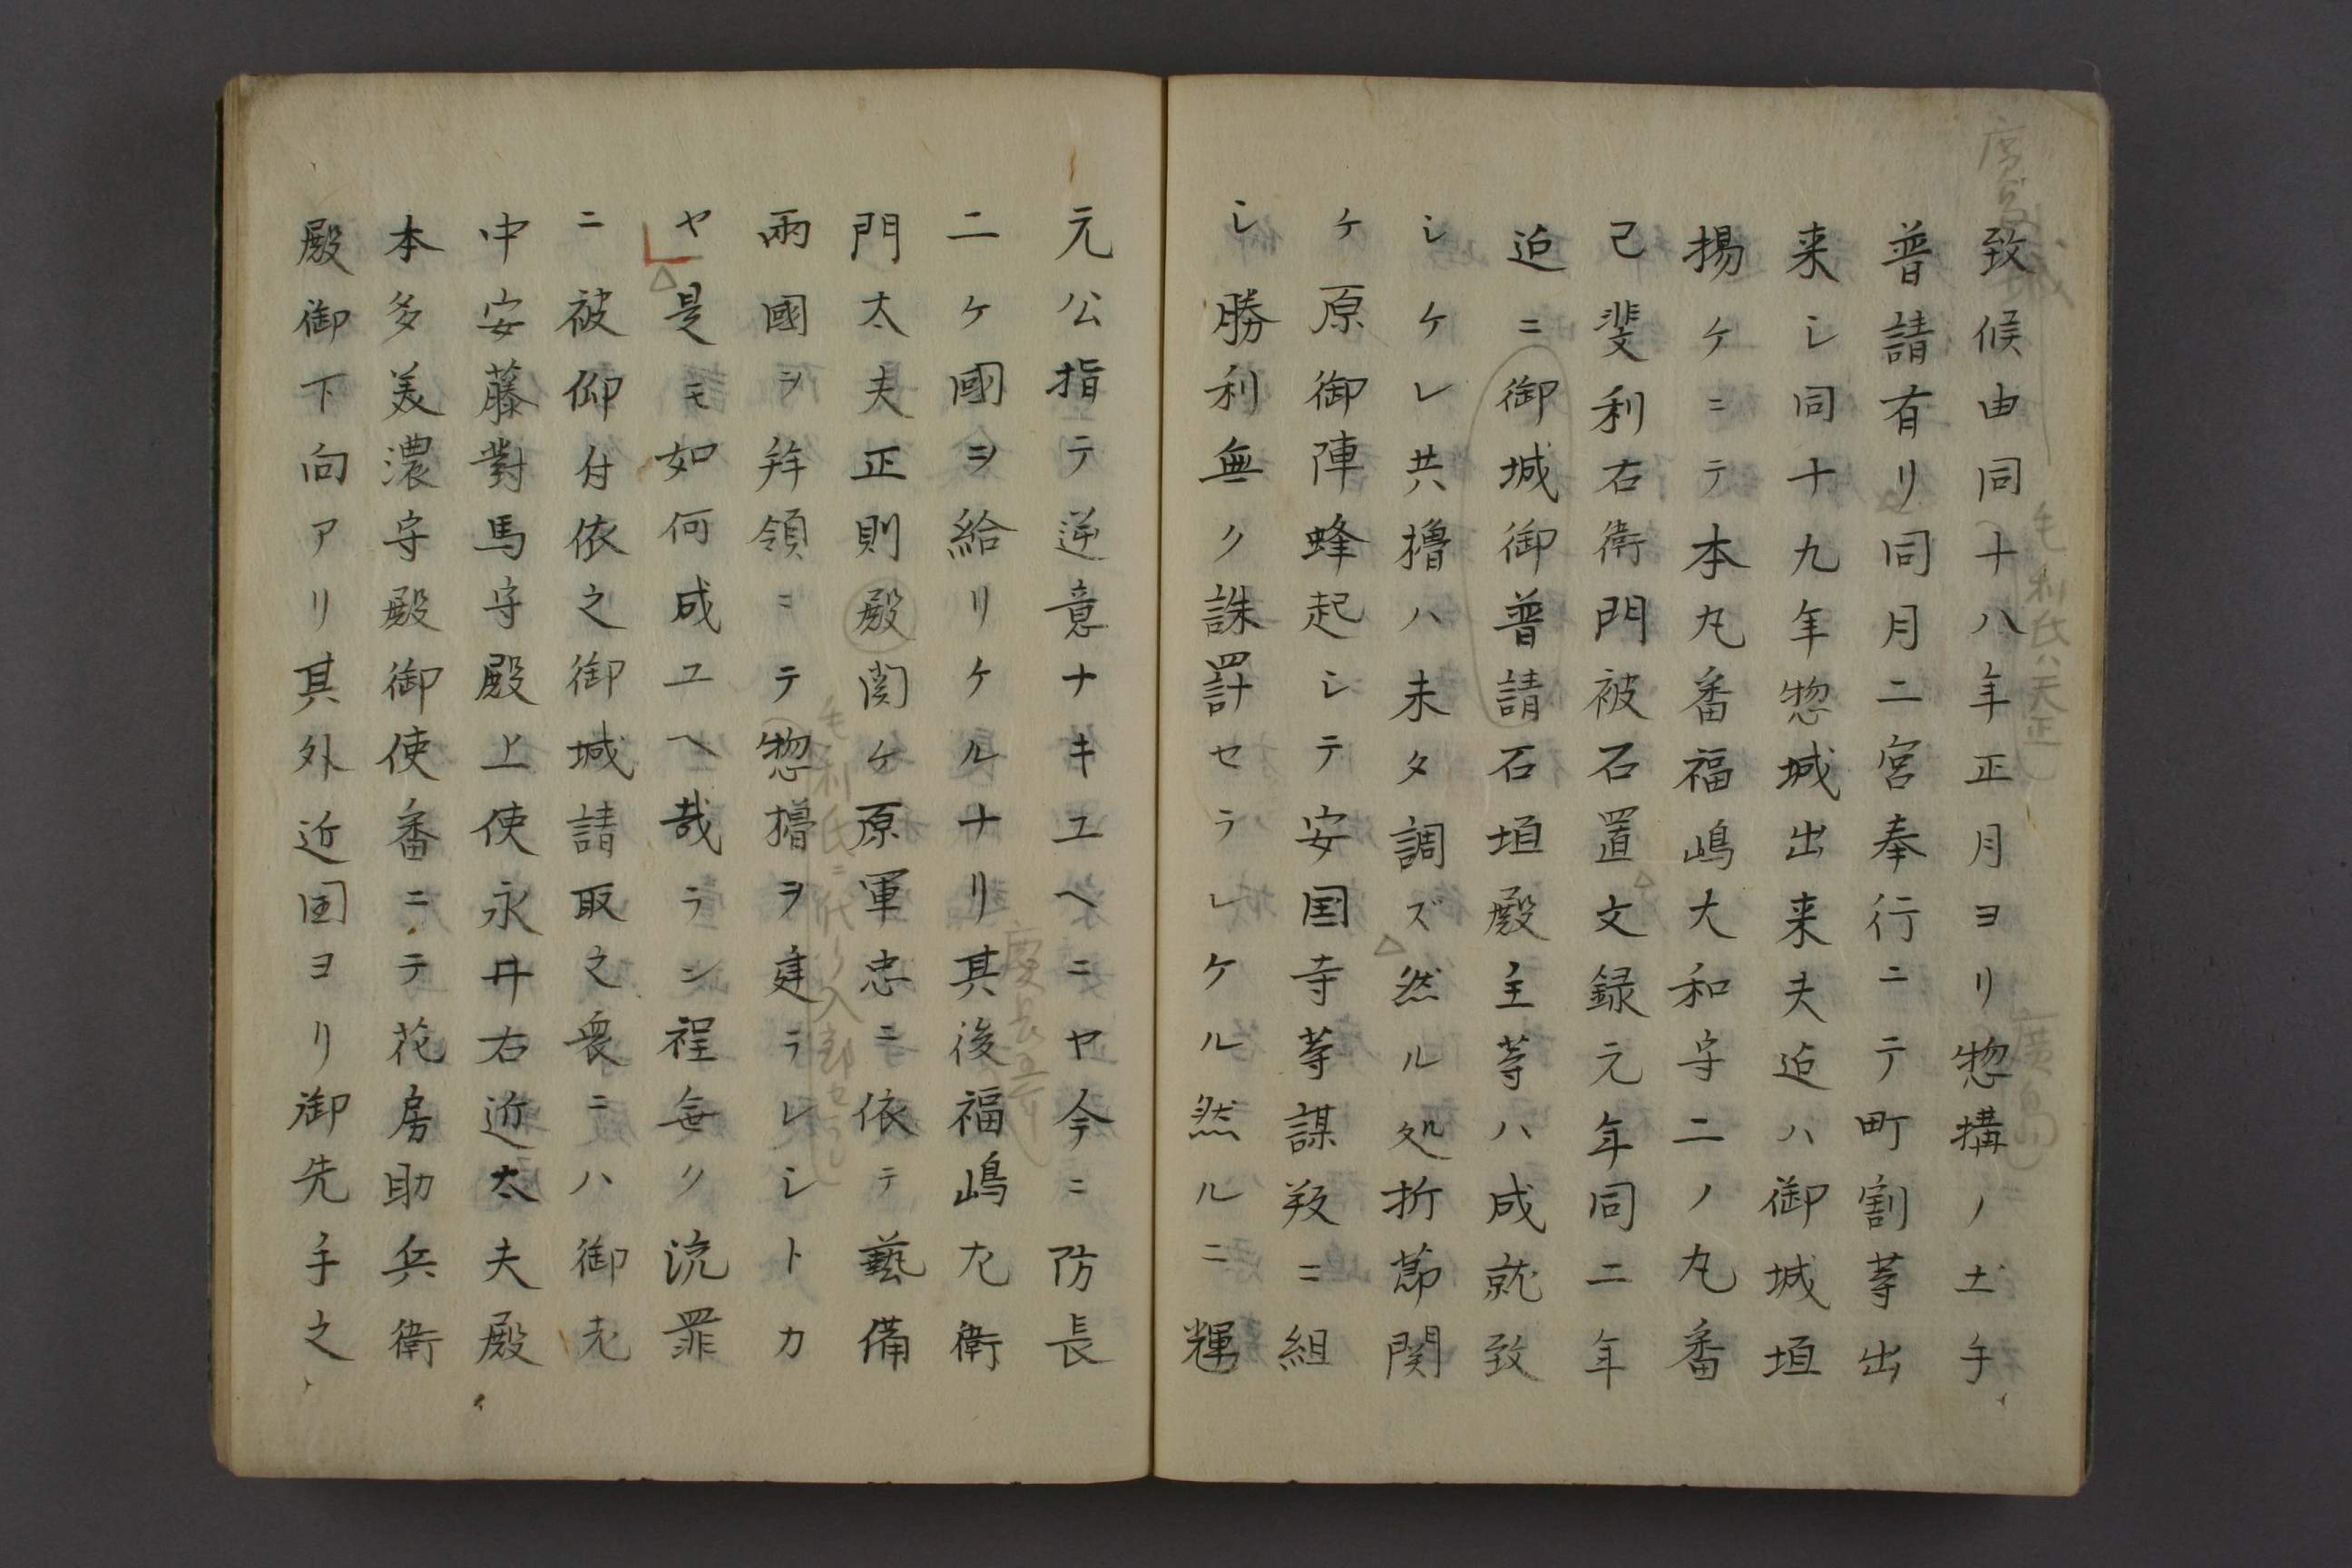 致候由同十八年正月ヨリ惣構ノ土手
普請有リ同月二宮奉行ニテ町割等出
来シ同十九年惣城出来夫迠ハ御城垣
揚ケニテ本丸番福嶋大和守二ノ丸番
己斐利右衛門被石置文録元年同二年
迠ニ御城御普請石垣殿主等ハ成就致
シケレ共櫓ハ未タ調ズ然ル処折節関
ケ原御陣蜂起シテ安国寺等謀叛ニ組
シ勝利無ク誅罰セラレケル然ルニ輝
元公指テ逆意ナキユヘニヤ今ニ防長
二ケ國ヲ給リケルナリ其後福嶋左衛
門太夫正則殿関ケ原軍忠ニ依テ藝備
兩國ヲ拜領ニテ惣櫓ヲ建ラレシトカ
ヤ是モ如何成ユヘ哉ラン程無ク流罪
ニ被仰付依之御城請取之衆ニハ御老
中安藤對馬守殿上使永井右近太夫殿
本多美濃守殿御使番ニテ花房助兵衛
殿御下向アリ其外近国ヨリ御先手之
廣島城
毛利氏ハ天正
廣島
毛利氏ニ代リ入部セラ
慶長五年